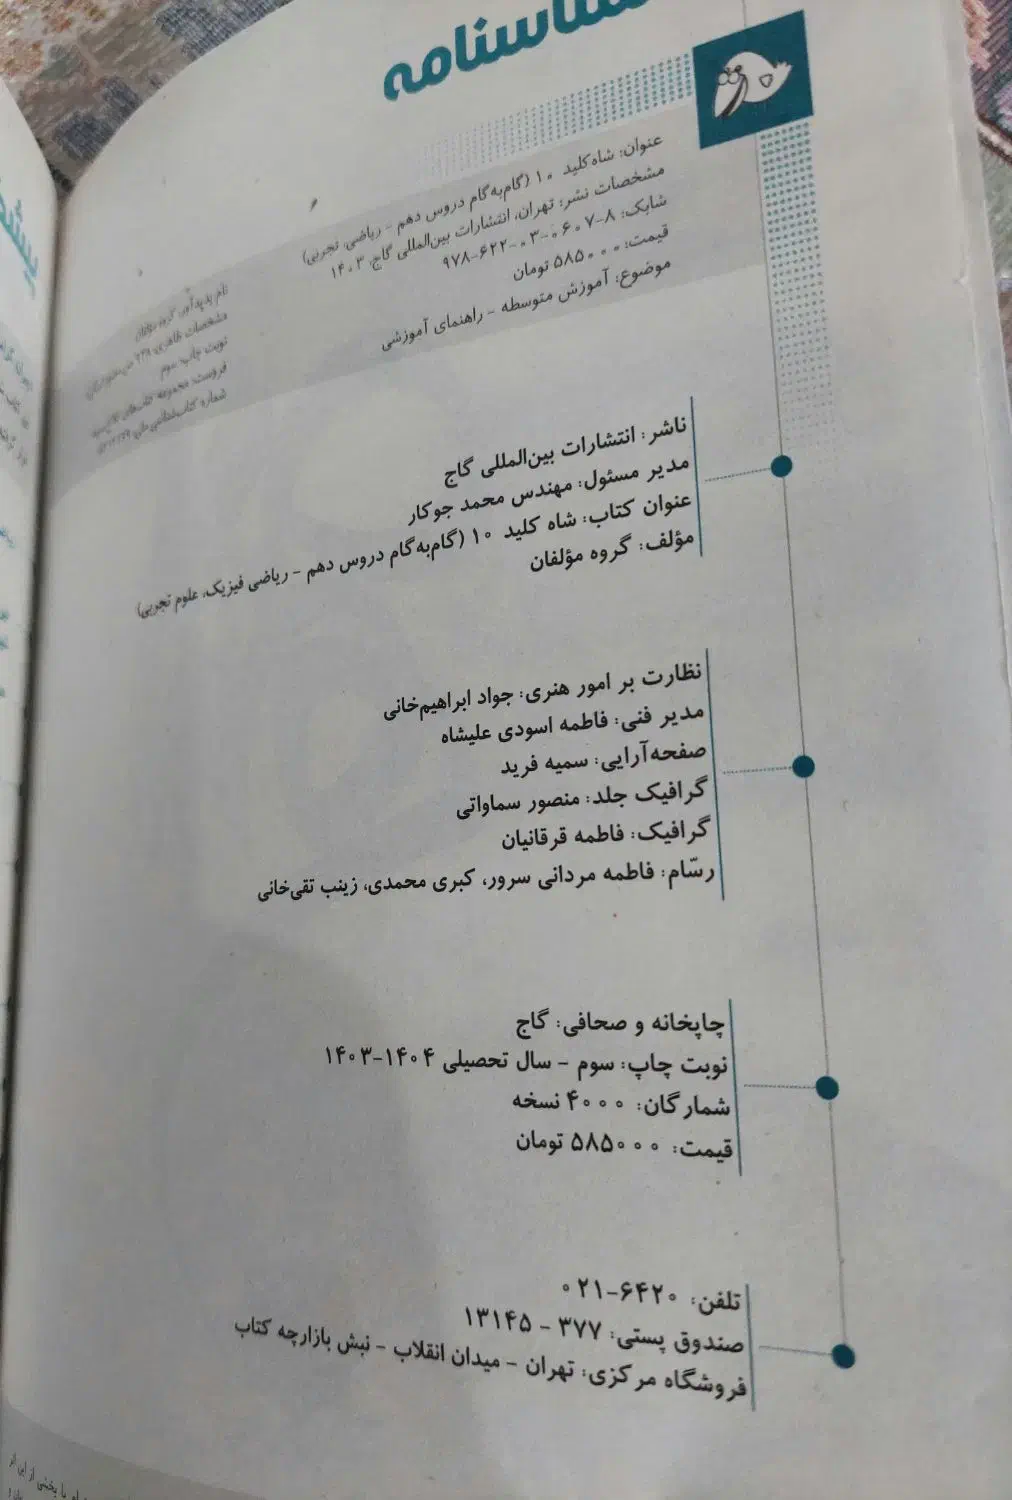 شناسنامه
عنوان: شاه‌کلید ۱۰ (گام‌به‌گام دروس دهم - ریاضی، تجربی)
مشخصات نشر: تهران، انتشارات بین‌المللی گاج، ۱۴۰۳
شابک: ۸-۰۶۰۷-۰۳-۶۲۲-۹۷۸
قیمت: ۵۸۵۰۰۰ تومان
موضوع: آموزش متوسطه - راهنمای آموزشی
نام پدیدآور: گروه مؤلفان
مشخصات ظاهری:
نوبت چاپ: سوم
فروست: مجموعه کتاب‌های
شماره کتاب‌شناسی ملی:
ناشر: انتشارات بین‌المللی گاج
مدیر مسئول: مهندس محمد جوکار
عنوان کتاب: شاه کلید ۱۰ (گام‌به‌گام دروس دهم - ریاضی فیزیک، علوم تجربی)
مؤلف: گروه مؤلفان
نظارت بر امور هنری: جواد ابراهیم‌خانی
مدیر فنی: فاطمه اسودی علیشاه
صفحه‌آرایی: سمیه فرید
گرافیک جلد: منصور سماواتی
گرافیک: فاطمه قرقانیان
رسّام: فاطمه مردانی سرور، کبری محمدی، زینب تقی‌خانی
چاپخانه و صحافی: گاج
نوبت چاپ: سوم - سال تحصیلی ۱۴۰۴-۱۴۰۳
شمارگان: ۴۰۰۰ نسخه
قیمت: ۵۸۵۰۰۰ تومان
تلفن: ۶۴۲۰-۰۲۱
صندوق پستی: ۳۷۷ - ۱۳۱۴۵
فروشگاه مرکزی: تهران - میدان انقلاب - نبش بازارچه کتاب
یا بخشی از این اثر